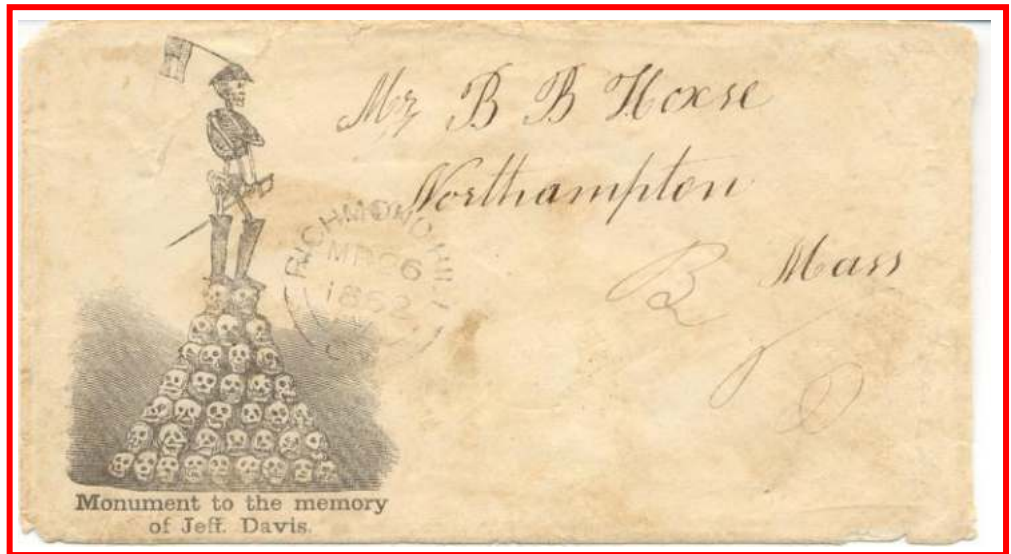 Mr B B Hoxse
Northampton
Mass
RICHMOND HILL
1862
Monument to the memory
of Jeff. Davis.